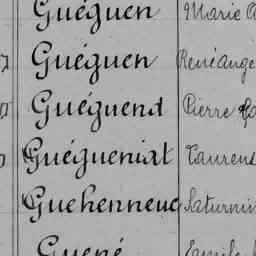 Guéguen Marie
Guéguen René ange
Guéguend Pierre
Guégueniat Laurens
Guehenneuc Saturnin
Guené Emile